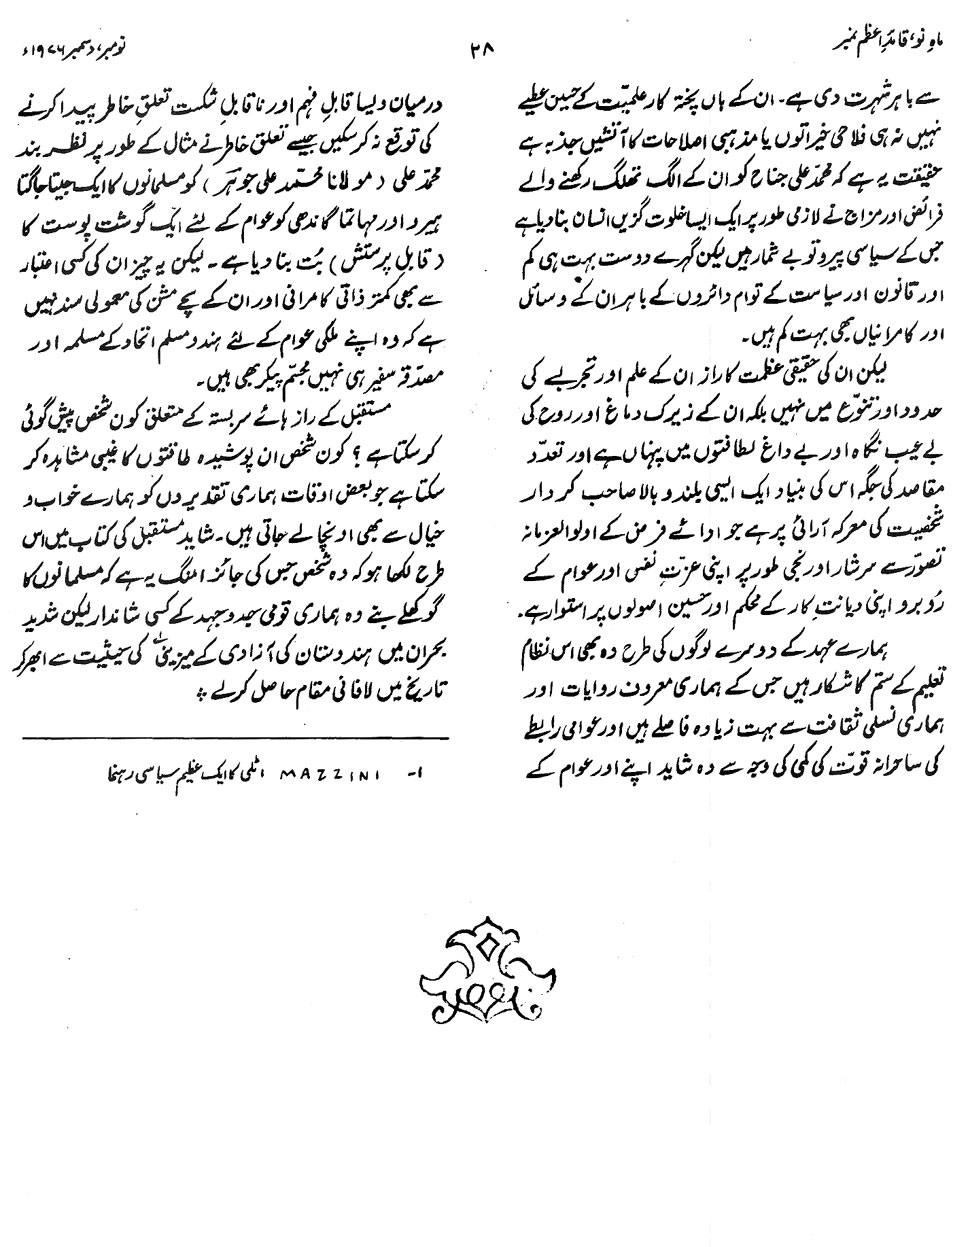 ماہِ نو، قائدِ اعظم نمبر
۲۸
نومبر، دسمبر ۱۹۷۶ء
سے باہر شہرت دی ہے۔ ان کے ہاں پختہ کار علمیت کے حسین عطیے
نہیں نہ ہی فلاحی خیراتوں یا مذہبی اصلاحات کا آتشیں جذبہ ہے
حقیقت یہ ہے کہ محمد علی جناح کو ان کے الگ تھلگ رکھنے والے
فرائض اور مزاج نے لازمی طور پر ایک ایسا خلوت گزیں انسان بنا دیا ہے
جس کے سیاسی پیرو تو بے شمار ہیں لیکن گہرے دوست بہت ہی کم
اور قانون اور سیاست کے توام دائروں کے باہر ان کے وسائل
اور کامرانیاں بھی بہت کم ہیں۔
لیکن ان کی حقیقی عظمت کا راز ان کے علم اور تجربے کی
حدود اور تنوّع میں نہیں بلکہ ان کے زیرک دماغ اور روح کی
بے عیب نگاہ اور بے داغ لطافتوں میں پنہاں ہے اور تعدّد
مقاصد کی جگہ اس کی بنیاد ایک ایسی بلند و بالا صاحب کردار
شخصیت کی معرکہ آرائی پر ہے جو ادائے فرض کے اولوالعزمانہ
تصوّر سے سرشار اور نجی طور پر اپنی عزتِ نفس اور عوام کے
رُو برو اپنی دیانتِ کار کے محکم اور حسین اصولوں پر استوار ہے۔
ہمارے عہد کے دوسرے لوگوں کی طرح وہ بھی اس نظام
تعلیم کے ستم کا شکار ہیں جس کے ہماری معروف روایات اور
ہماری نسلی ثقافت سے بہت زیادہ فاصلے ہیں اور عوامی رابطے
کی ساحرانہ قوّت کی کمی کی وجہ سے وہ شاید اپنے اور عوام کے
درمیان ویسا قابلِ فہم اور ناقابلِ شکست تعلقِ خاطر پیدا کرنے
کی توقع نہ کر سکیں جیسے تعلق خاطر نے مثال کے طور پر نظر بند
محمد علی (مولانا محمد علی جوہر) کو مسلمانوں کا ایک جیتا جاگتا
ہیرو اور مہاتما گاندھی کو عوام کے لئے ایک گوشت پوست کا
(قابلِ پرستش) بُت بنا دیا ہے۔ لیکن یہ چیز ان کی کسی اعتبار
سے بھی کمتر ذاتی کامرانی اور ان کے سچے مشن کی معمولی سند نہیں
ہے کہ وہ اپنے ملکی عوام کے لئے ہندو مسلم اتحاد کے مسلمہ اور
مصدّقہ سفیر ہی نہیں مجسّم پیکر بھی ہیں۔
مستقبل کے راز ہائے سربستہ کے متعلق کون شخص پیش گوئی
کر سکتا ہے؟ کون شخص ان پوشیدہ طاقتوں کا غیبی مشاہدہ کر
سکتا ہے جو بعض اوقات ہماری تقدیروں کو ہمارے خواب و
خیال سے بھی اونچا لے جاتی ہیں۔ شاید مستقبل کی کتاب میں اس
طرح لکھا ہو کہ وہ شخص جس کی جائز امنگ یہ ہے کہ مسلمانوں کا
گوکھلے بنے وہ ہماری قومی جدوجہد کے کسی شاندار لیکن شدید
بحران میں ہندوستان کی آزادی کے میزینی۱ کی حیثیت سے ابھر کر
تاریخ میں لافانی مقام حاصل کر لے ؞
۱۔ MAZZINI اٹلی کا ایک عظیم سیاسی رہنما